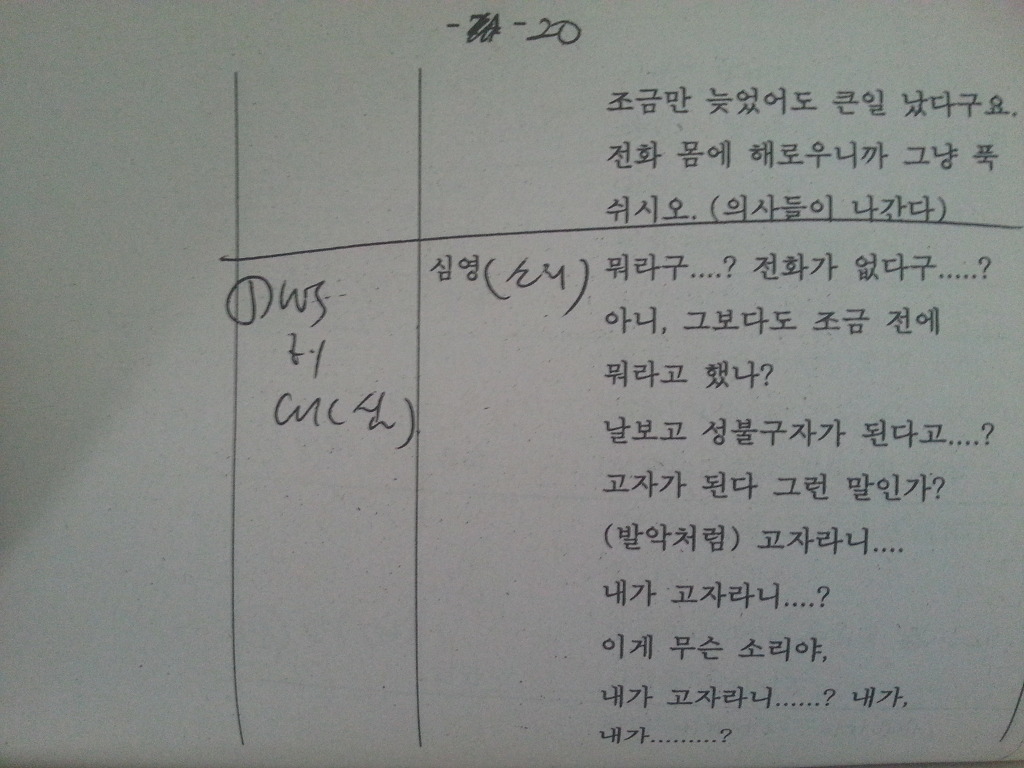 -20
조금만 늦었어도 큰일 났다구요.
전화 몸에 해로우니까 그냥 푹
쉬시오. (의사들이 나간다)
심영 뭐라구....? 전화가 없다구.....?
① WS
아니, 그보다도 조금 전에
뭐라고 했나?
날보고 성불구자가 된다고....?
고자가 된다 그런 말인가?
(발악처럼) 고자라니....
내가 고자라니....?
이게 무슨 소리야,
내가 고자라니......? 내가,
내가.........?